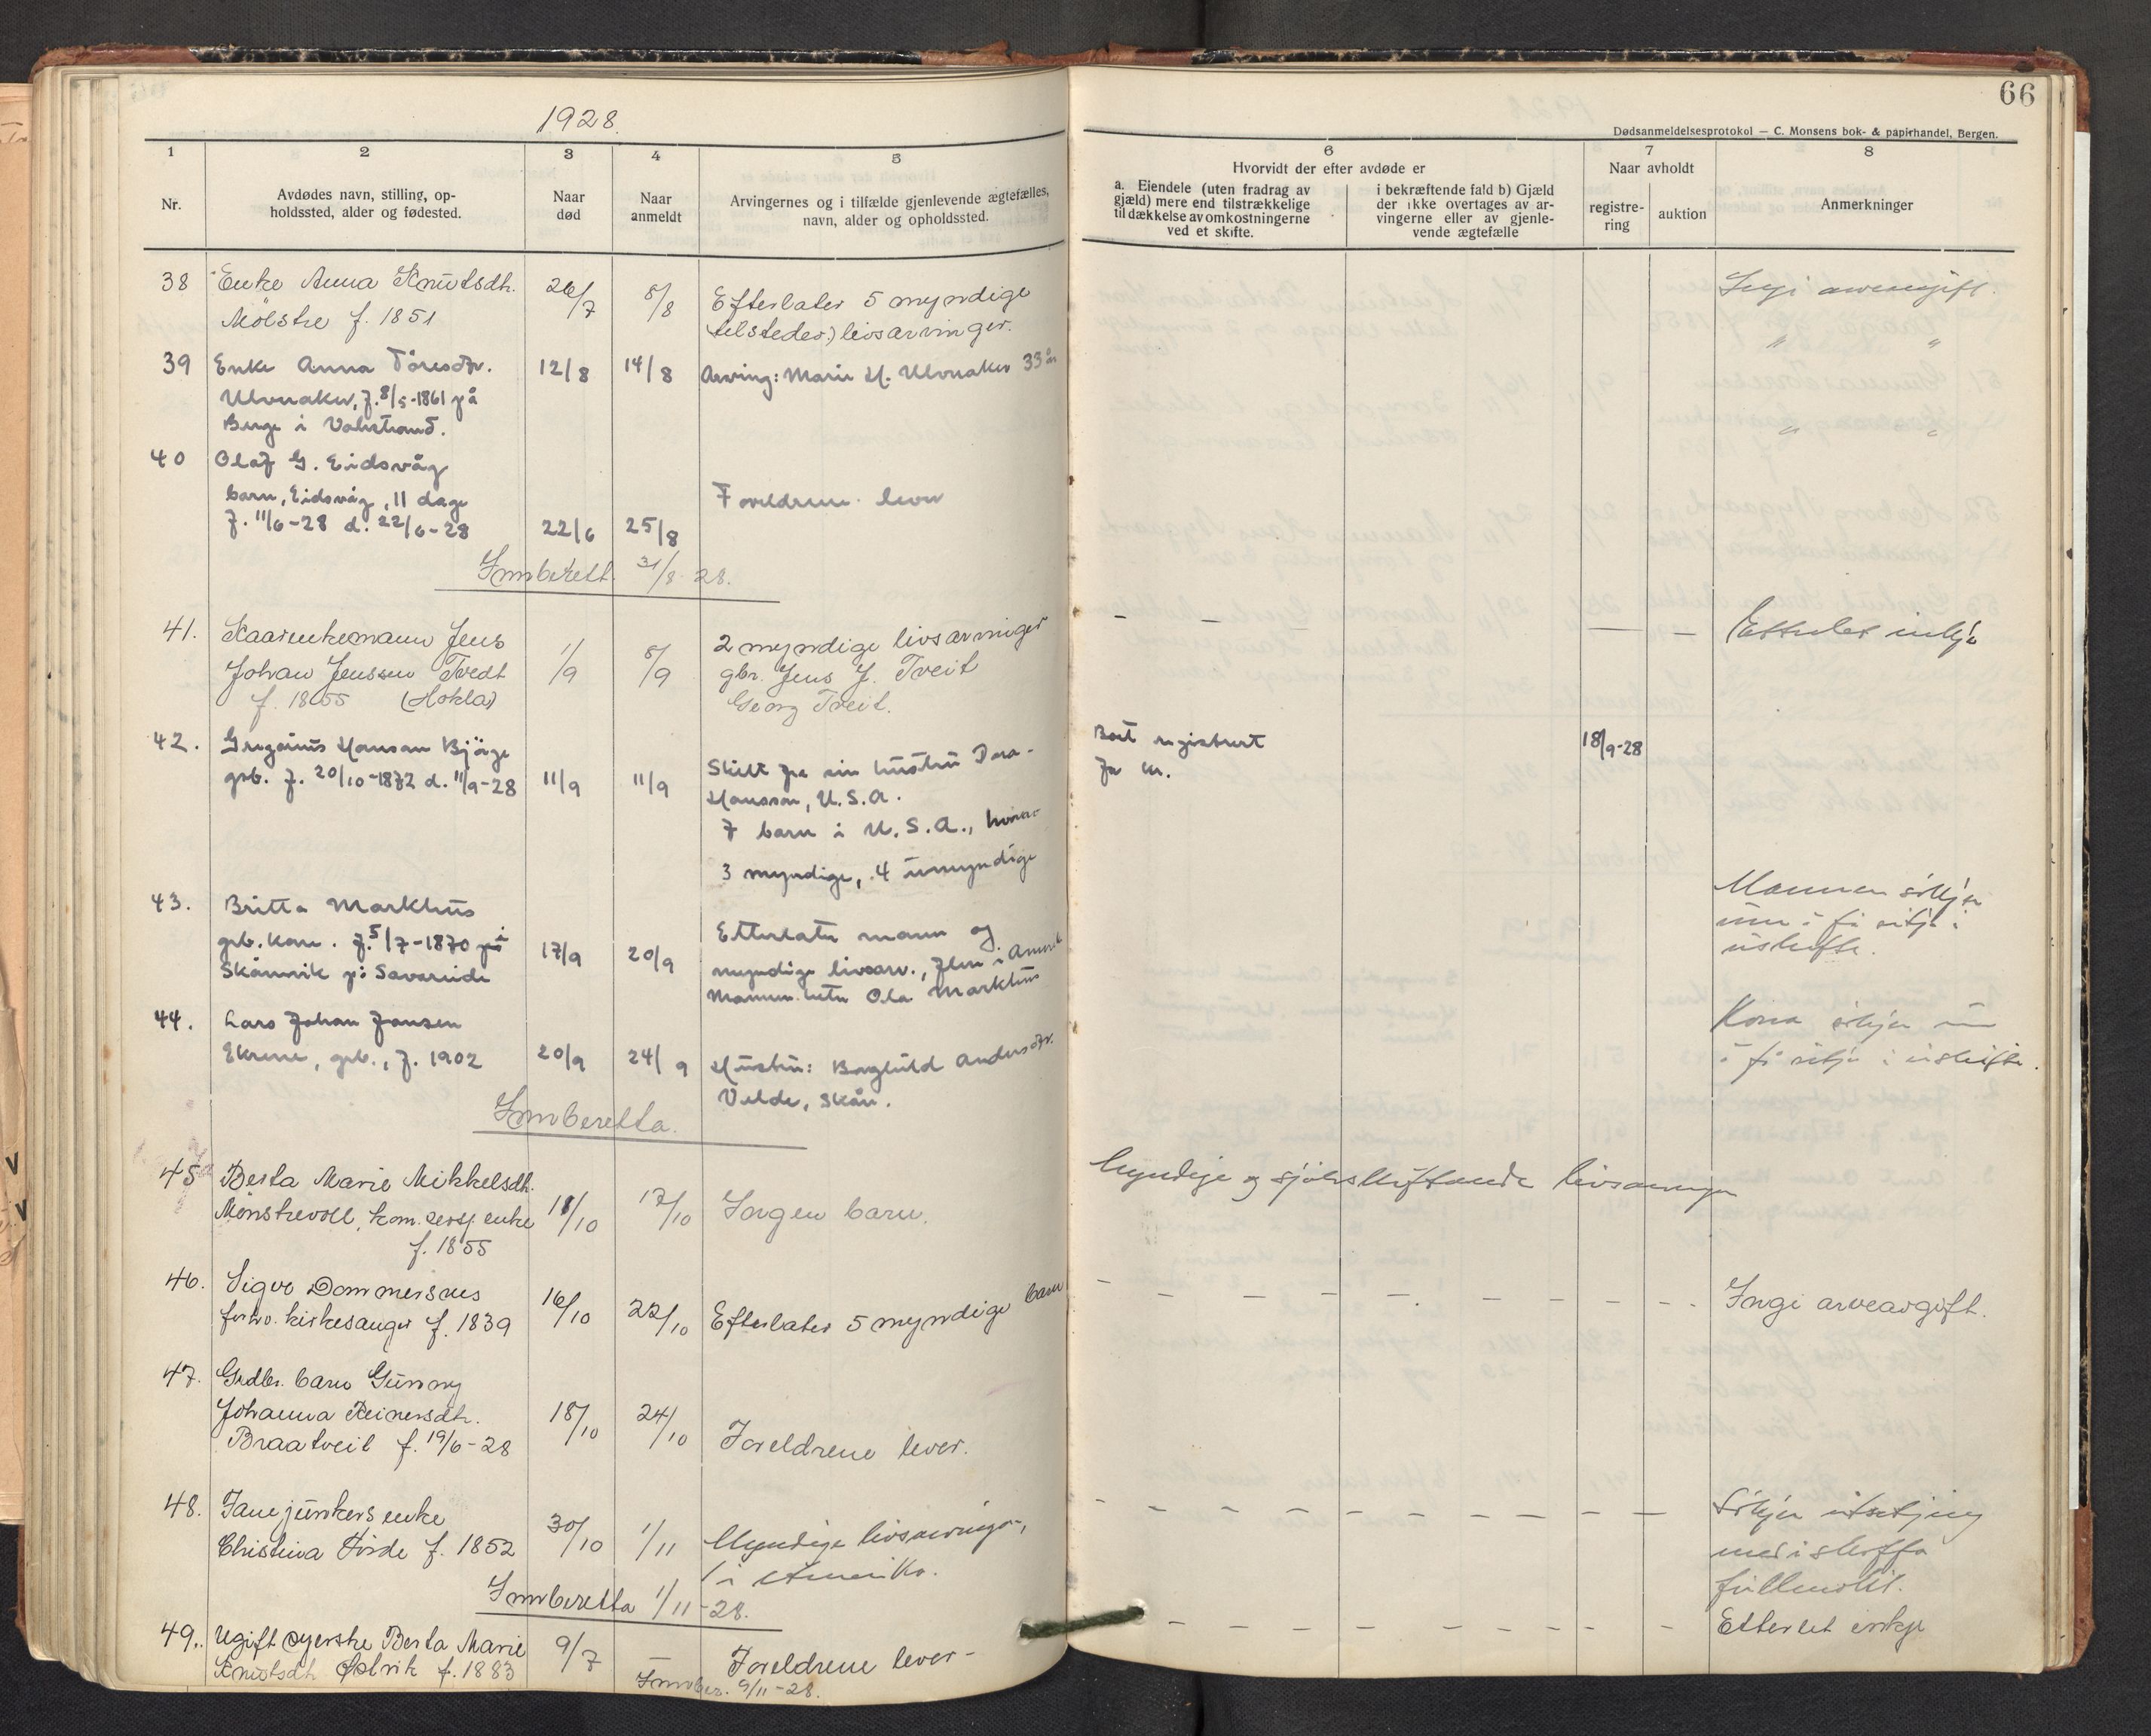 1928.
66
Dødsanmeldelsesprotokol — C. Monsens bok- & papirhandel, Bergen.
1
Nr.
2
Avdødes navn, stilling, op-
holdssted, alder og fødested.
3
Naar
død
4
Naar
anmeldt
5
Arvingernes og i tilfælde gjenlevende ægtefælles,
navn, alder og opholdssted.
6
Hvorvidt der efter avdøde er
a. Eiendele (uten fradrag av
gjæld) mere end tilstrækkelige
til dækkelse av omkostningerne
ved et skifte.
i bekræftende fald b) Gjæld
der ikke overtages av ar-
vingerne eller av gjenle-
vende ægtefælle
7
Naar avholdt
registre-
ring
auktion
8
Anmerkninger
38 Enke Anna Knutsdtr. 26/7 8/8 Efterlater 5 myndige
Mölstre f. 1851 livsarvinger.
39 Enke Anna Töresdtr. 12/8 14/8 Arving: Marie H. Ulvnaker 33 år
Ulvnaker, f. 8/5-1861 på
Berge i Valestrand.
40 Olaf G. Eidsvåg
barn, Eidsvåg, 11 dage Foreldrene lever
f. 11/6-28 d. 22/6-28 22/6 25/8
Innberett. 31/8 28.
41. Kaarenkemann Jens 1/9 8/9 2 myndige livsarvinger
Johan Jenssen Tvedt gbr. Jens J. Tveit
f. 1855 (Hokla) Georg Tveit.
Etterlet inkje
42. Gregorius Hansen Bjørge
grb. f. 20/10-1872 d. 11/9-28 11/9 11/9 Skilt fra sin hustru Dora
Hansson, U.S.A.
7 barn i U.S.A., hvorav
3 myndige, 4 umyndige
Boet registrert 18/9-28
for kr.
43. Britta Markhus
grb. kone. f. 5/7-1870 på i
Skånevik på Savareide 17/9 20/9 Etterlater mann og
myndige livsarv., flere i Amerik
Mannen heter Ola Markhus
Mannen søkjer
um å få sitja i
uskifte.
44. Lars Johan Jansen
Ekrene, grb., f. 1902 20/9 24/9 Hustru: Borghild Andersdtr.
Velde, Skån.
Kona søkjer um
å få sitja i uskifte.
Innberetta.
45 Berta Marie Mikkelsdtr.
Mönstrevoll, kom. enke 11/10 17/10 Ingen barn.
f. 1855
Myndige og sjølvskiftande livsarvingar
46. Sigvo Dommersnes
forhv. kirkesanger f. 1839 16/10 22/10 Efterlater 5 myndige barn
Ingi arveavgift.
47. Grdbr. barn Gunny
Johanna Reinersdtr.
Braatveit f. 19/6-28 18/10 24/10 Foreldrene lever.
48. Fanejunkers enke
Christina Förde f. 1852 30/10 1/11 Myndige livsarvinger,
i Amerika.
Søkjer utsetjing
med i skaffa
fullmakt.
Innberetta 1/11-28.
49. Ugift syerske Berta Marie 9/7 Foreldrene lever -
Knutsdtr. Ølvik f. 1883
Etterlet inkje
Innber. 9/11-28.